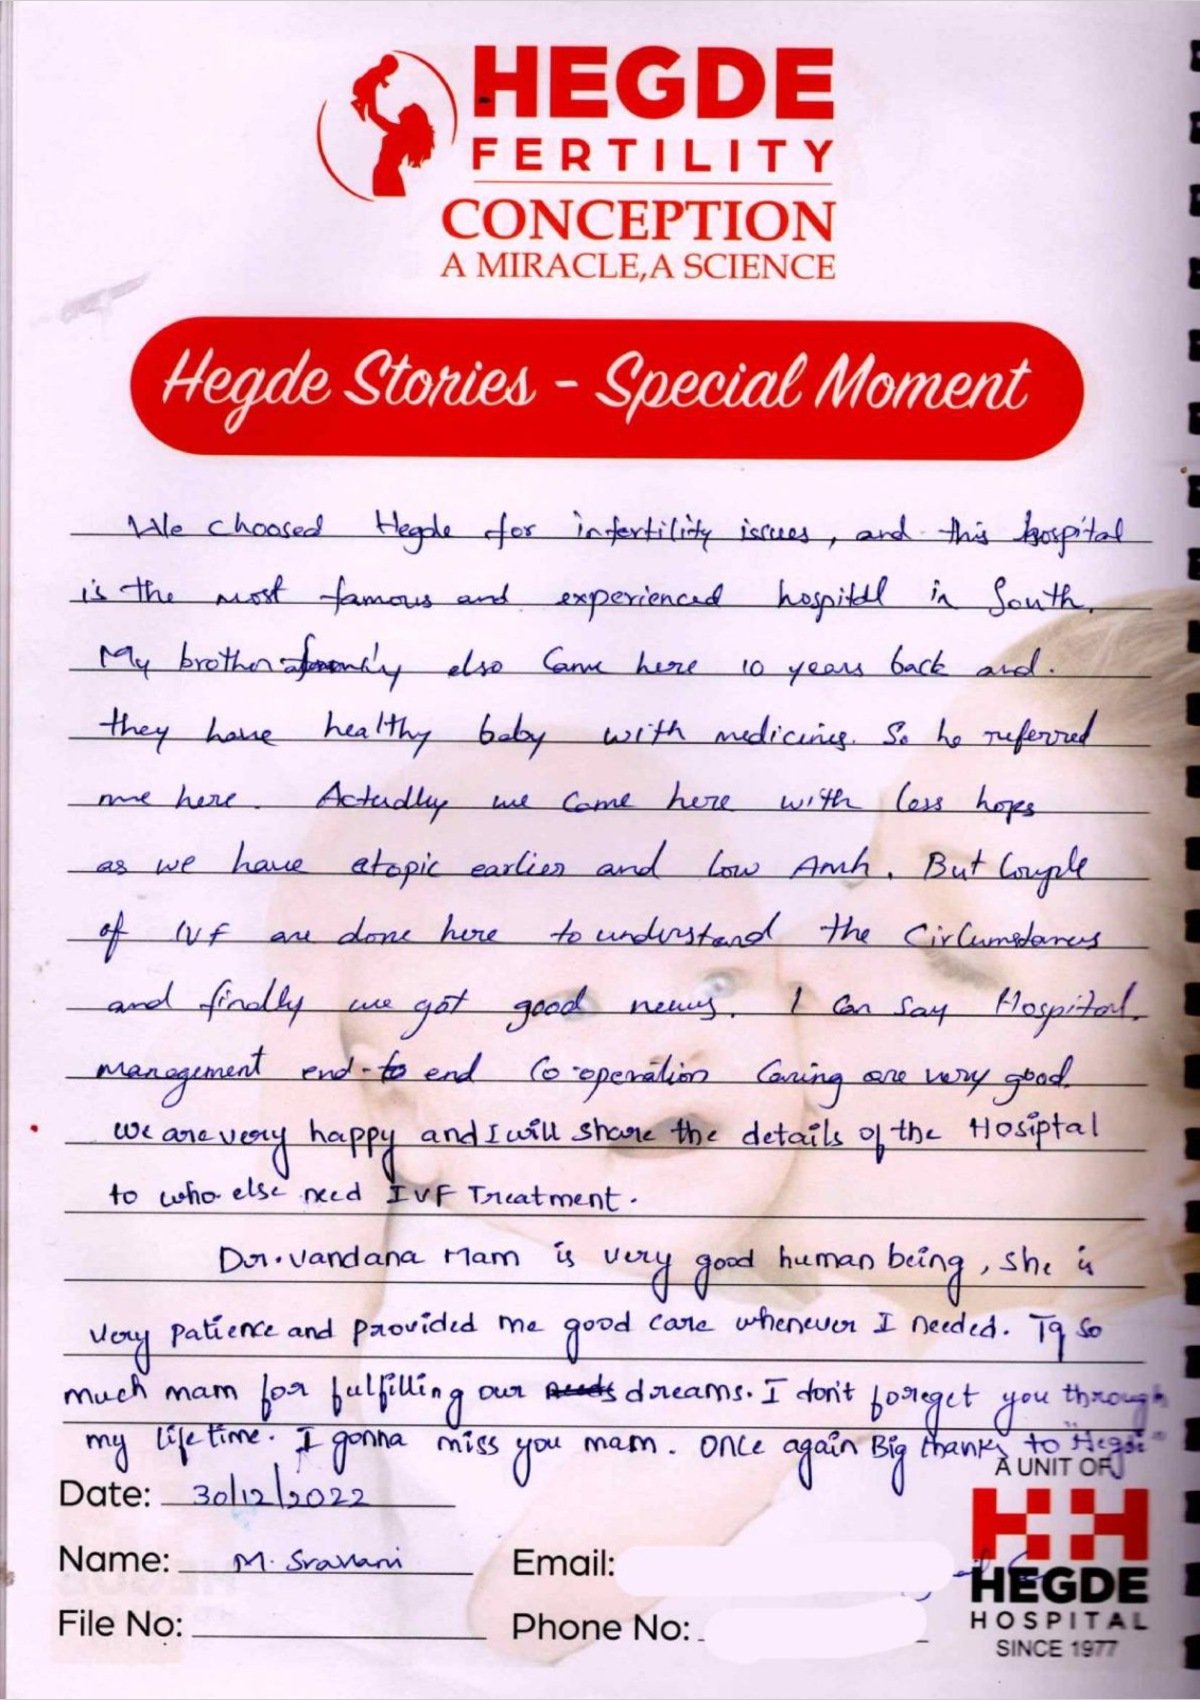 HEGDE
FERTILITY
CONCEPTION
A MIRACLE, A SCIENCE
Hegde Stories - Special Moment
We choosed Hegde for infertility issues, and this hospital
is the most famous and experienced hospital in South.
My brother family also came here 10 years back and.
they have healthy baby with medicines. So he referred
me here. Actually we came here with less hopes
as we have atopic earlier and low Amh. But Couple
of IVF are done here to understand the Circumstances
and finally we got good news. I can say Hospital.
management end-to end Co-operation Caring are very good.
we are very happy and I will share the details of the Hosiptal
to who else need IVF Treatment.
Dr. vandana Mam is very good human being, she is
very patience and provided me good care whenever I needed. Tq so
much mam for fulfilling our needs dreams. I don't foreget you through
my life time. I gonna miss you mam. Once again Big thanks to "Hegde"
A UNIT OF
Date: 30/12/2022
Name: M. Sravani Email:
HEGDE
HOSPITAL
File No: Phone No:
SINCE 1977